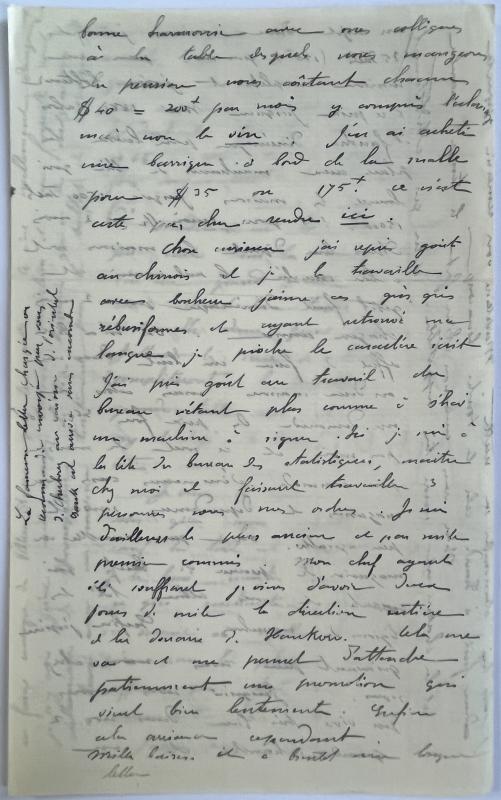 bonne harmonie avec mes collègues
à la table desquels nous mangeons
la pension nous coûtant chacun
$40 = 200f par mois y compris l'éclairage
mais non le vin. J'en ai acheté
une barrique à bord de la malle
pour $35 ou 175f. ce n'est
certe pas cher rendu ici.
Chose curieuse j'ai repris goût
au chinois et je le travaille
avec bonheur j'aime ces gris gris
rébusiformes et ayant retrouvé ma
langue je pioche le caractère écrit
J'ai pris goût au travail du
bureau n'étant plus comme à
une machine à signer. Ici je suis à
la tête du bureau des statistiques, maître
chez moi et faisant travailler 3
personnes sous mes ordres. Je suis
d'ailleurs le plus ancien et par suite
premier commis mon chef ayant
été souffrant je viens d'avoir deux
jours de suite la direction entière
de la douane de Hankow. Cela me
va et me permet d'attendre
patiemment une promotion qui
vient bien lentement. Enfin
cela arrivera cependant
Mille baisers et à bientôt une longue
lettre
La fameuse lettre chargée
envoyée par vous
de au